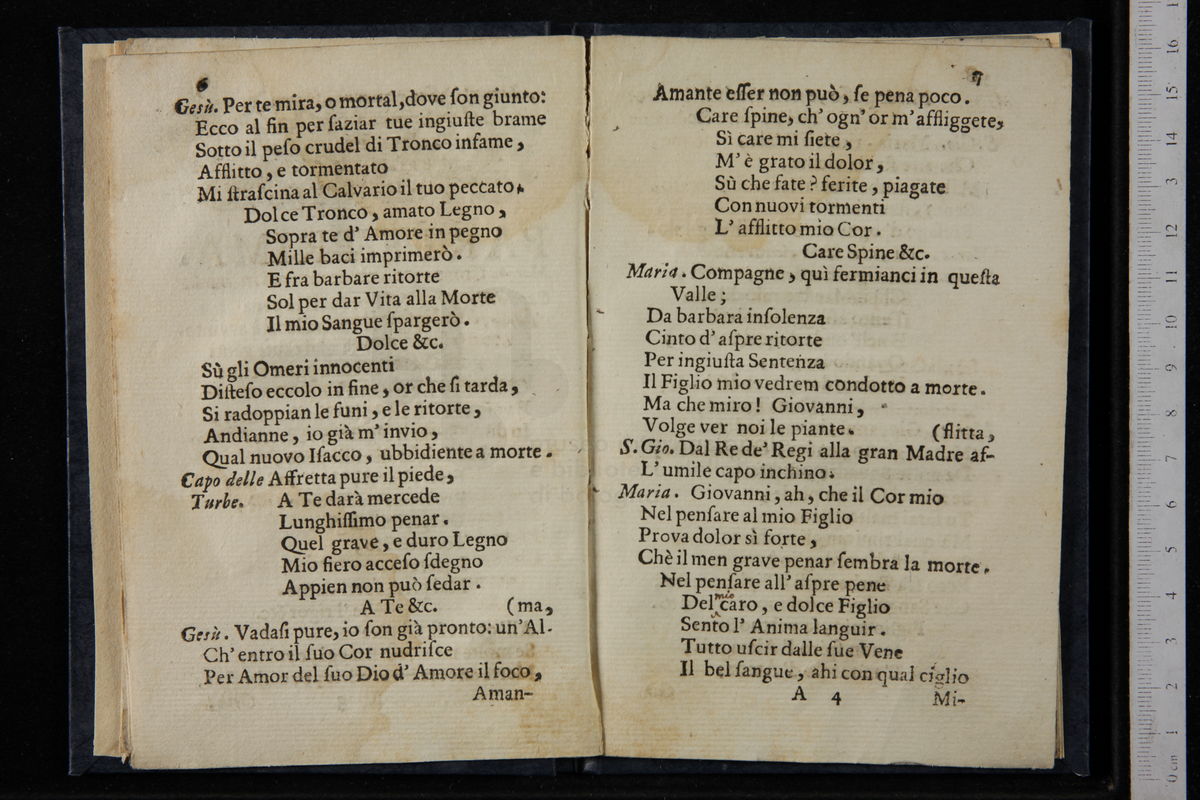 6
Gesù. Per te mira, o mortal, dove ſon giunto:
Ecco al fin per ſaziar tue ingiuſte brame
Sotto il peſo crudel di Tronco infame,
Afflitto, e tormentato
Mi ſtraſcina al Calvario il tuo peccato.
Dolce Tronco, amato Legno,
Sopra te d' Amore in pegno
Mille baci imprimerò.
E fra barbare ritorte
Sol per dar Vita alla Morte
Il mio Sangue ſpargerò.
Dolce &c.
Sù gli Omeri innocenti
Diſteſo eccolo in fine, or che ſi tarda,
Si radoppian le funi, e le ritorte,
Andianne, io già m' invio,
Qual nuovo Iſacco, ubbidiente a morte.
Capo delle Affretta pure il piede,
Turbe. A Te darà mercede
Lunghiſſimo penar.
Quel grave, e duro Legno
Mio fiero acceſo ſdegno
Appien non può ſedar.
A Te &c. (ma,
Gesù. Vadaſi pure, io ſon già pronto: un' Al-
Ch' entro il ſuo Cor nudriſce
Per Amor del ſuo Dio d' Amore il foco,
Aman-
7
Amante eſſer non può, ſe pena poco.
Care ſpine, ch' ogn' or m' affliggete,
Sì care mi ſiete,
M' è grato il dolor,
Sù che fate? ferite, piagate
Con nuovi tormenti
L' afflitto mio Cor.
Care Spine &c.
Maria. Compagne, quì fermianci in queſta
Valle;
Da barbara inſolenza
Cinto d' aſpre ritorte
Per ingiuſta Sentenza
Il Figlio mio vedrem condotto a morte.
Ma che miro! Giovanni,
Volge ver noi le piante. (flitta,
S. Gio. Dal Re de' Regi alla gran Madre af-
L' umile capo inchino.
Maria. Giovanni, ah, che il Cor mio
Nel penſare al mio Figlio
Prova dolor sì forte,
Chè il men grave penar ſembra la morte.
Nel penſare all' aſpre pene
Del mio caro, e dolce Figlio
Sento l' Anima languir.
Tutto uſcir dalle ſue Vene
Il bel ſangue, ahi con qual ciglio
A 4 Mi-
0 cm 1 2 3 4 5 6 7 8 9 10 11 12 3 14 15 16 1